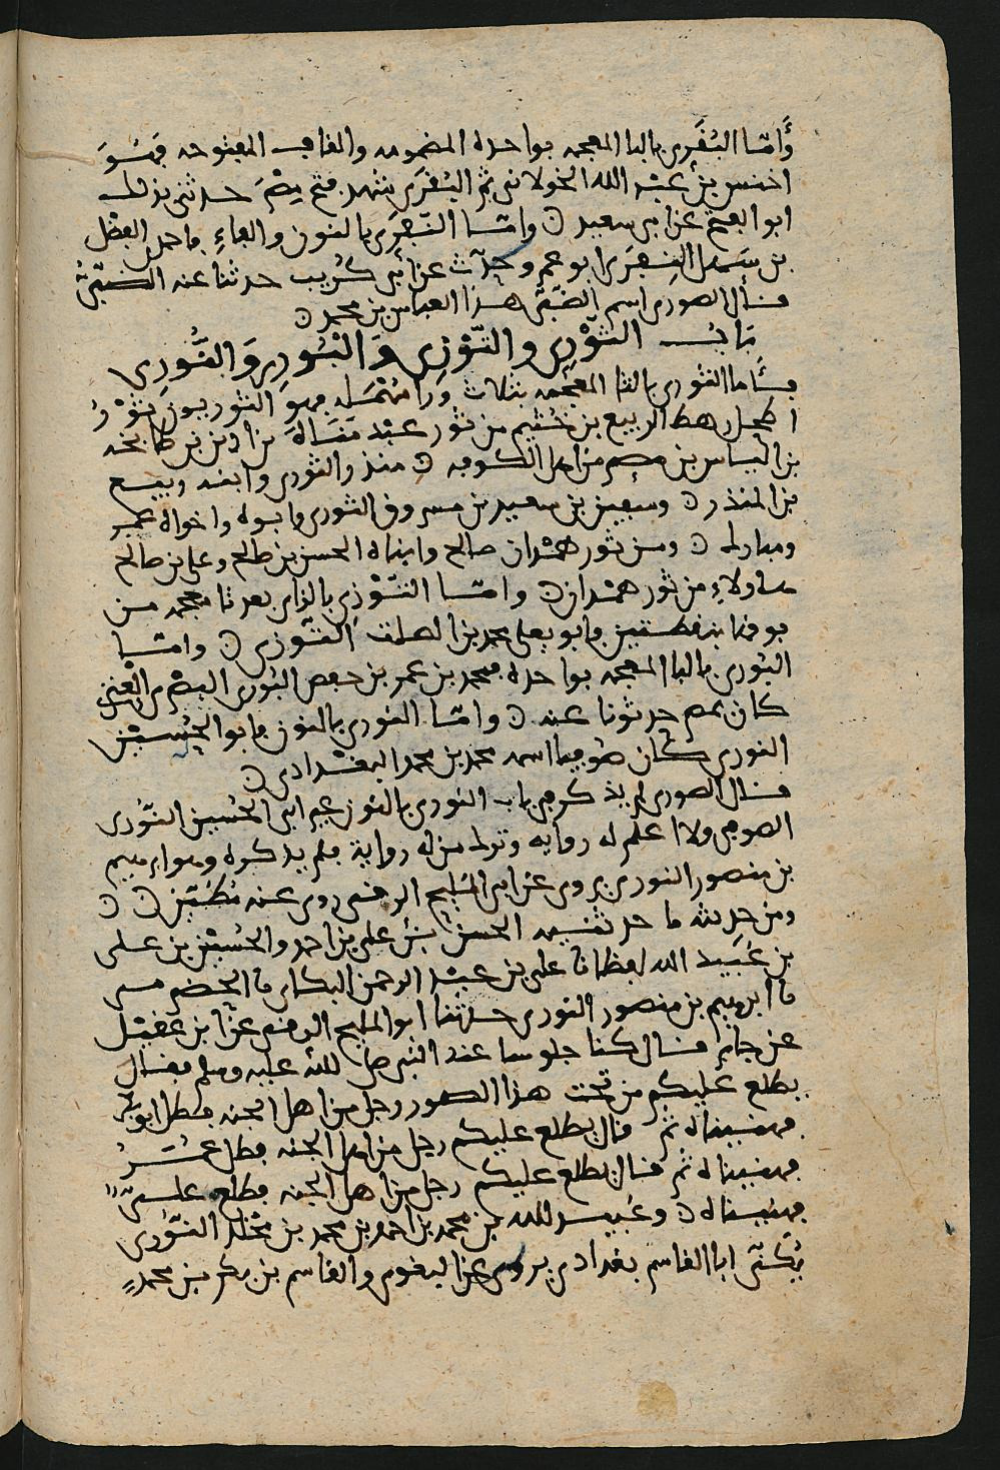 وَأمّا البُقَري بالبا المعجمه بواحده المضمومه والقاف المفتوحه فهُوَ
اخنس بن عبْد الله الخولاني ثم البُقَري شهد فتح مِصْرَ حدثني بذلك
ابو الفتح عن ابي سعيد ن وامّا النّفِرَي بالنون والفاءِ فاحمد بن الفضْل
بن سَهل النِفَري ابو عمرو حدّث عن أبي كُريب حدثنا عنه الضّبّيُّ
قال الصوري اسم الضّبّي هذا العباس بن محمد ن
بَابُ الثوْرِي والتّوّزِي وَالبُورِي وَالنُّورِي
فأما الثوري بالثا المعجمه بثلاث وَرا مُهْمَله فهوَ الثوريون ثوْرُ
اطحل رهط الربيع بن خُثيم من ثور عبْد مَنَاةَ بن أد بن طابخه
بن الياس بن مضر من اهل الكوفه ن منذر الثوري وابنه ربيع
بن المنذر ن وسفين بن سعيد بن مسروق الثوري وابوه واخواه عمر
ومبارك ن ومن ثور همْدان صالح وابناه الحسن بن صالح وعلي بن صالح
هاولاءِ من ثور همْدان ن وامّا التّوّزِي بالزاي بعد تا معجمه من
فوقها بنقطتين فابو يعلى محمد بن الصلت التّوزي ن وامّا
البُوري بالبا المعجمه بواحده فمحمد بن عمر بن حفص البُوري البصْري
كان بمصر حدثونا عنه ن وامّا النوري بالنون فابو الحُسيْن
النوري كَان صُوفيا اسمه محمد بن محمد البغْدادي ن
قال الصوري لم يذكر في باب النوري بالنون غير ابي الحُسين النُّوري
الصوفي ولا اعلم له روايه وترك من له رواية فلم يذكره وهو ابرهيم
بن منصور النوري يروى عن ابي المليح الرقي روى عنه مُطَيّن ن ن
ومن حديثه ما حدثنيه الحسن بن علي بن احمد والحُسيْن بن علي
بن عُبَيد الله لفظا نا علي بن عبْد الرحمن البكاي نا الحضرمي
نا ابرهيم بن منصور النوري حدثنا ابو المليح الرقي عن ابن عقيل
عن جابر قال كنا جلوسا عند النبي صلى الله عليه وسلم فقال
يطلع عليكم من تحت هذا الصور رجل من اهل الجنه فطلع ابو بكر
فهنيناه ثم قال يطلع عليكم رجل من اهل الجنه فطلع عُمَرُ
فهنيناه ثم قال يطلع عليكم رجل من اهل الجنه فطلع عليّ
فهنيناه ن وعُبيد الله بن محمد بن احمد بن محمد بن مخْلد النُّوري
يُكنّى ابا القاسم بغدادي يروى عن البغوي والقاسم بن بكر بن محمد